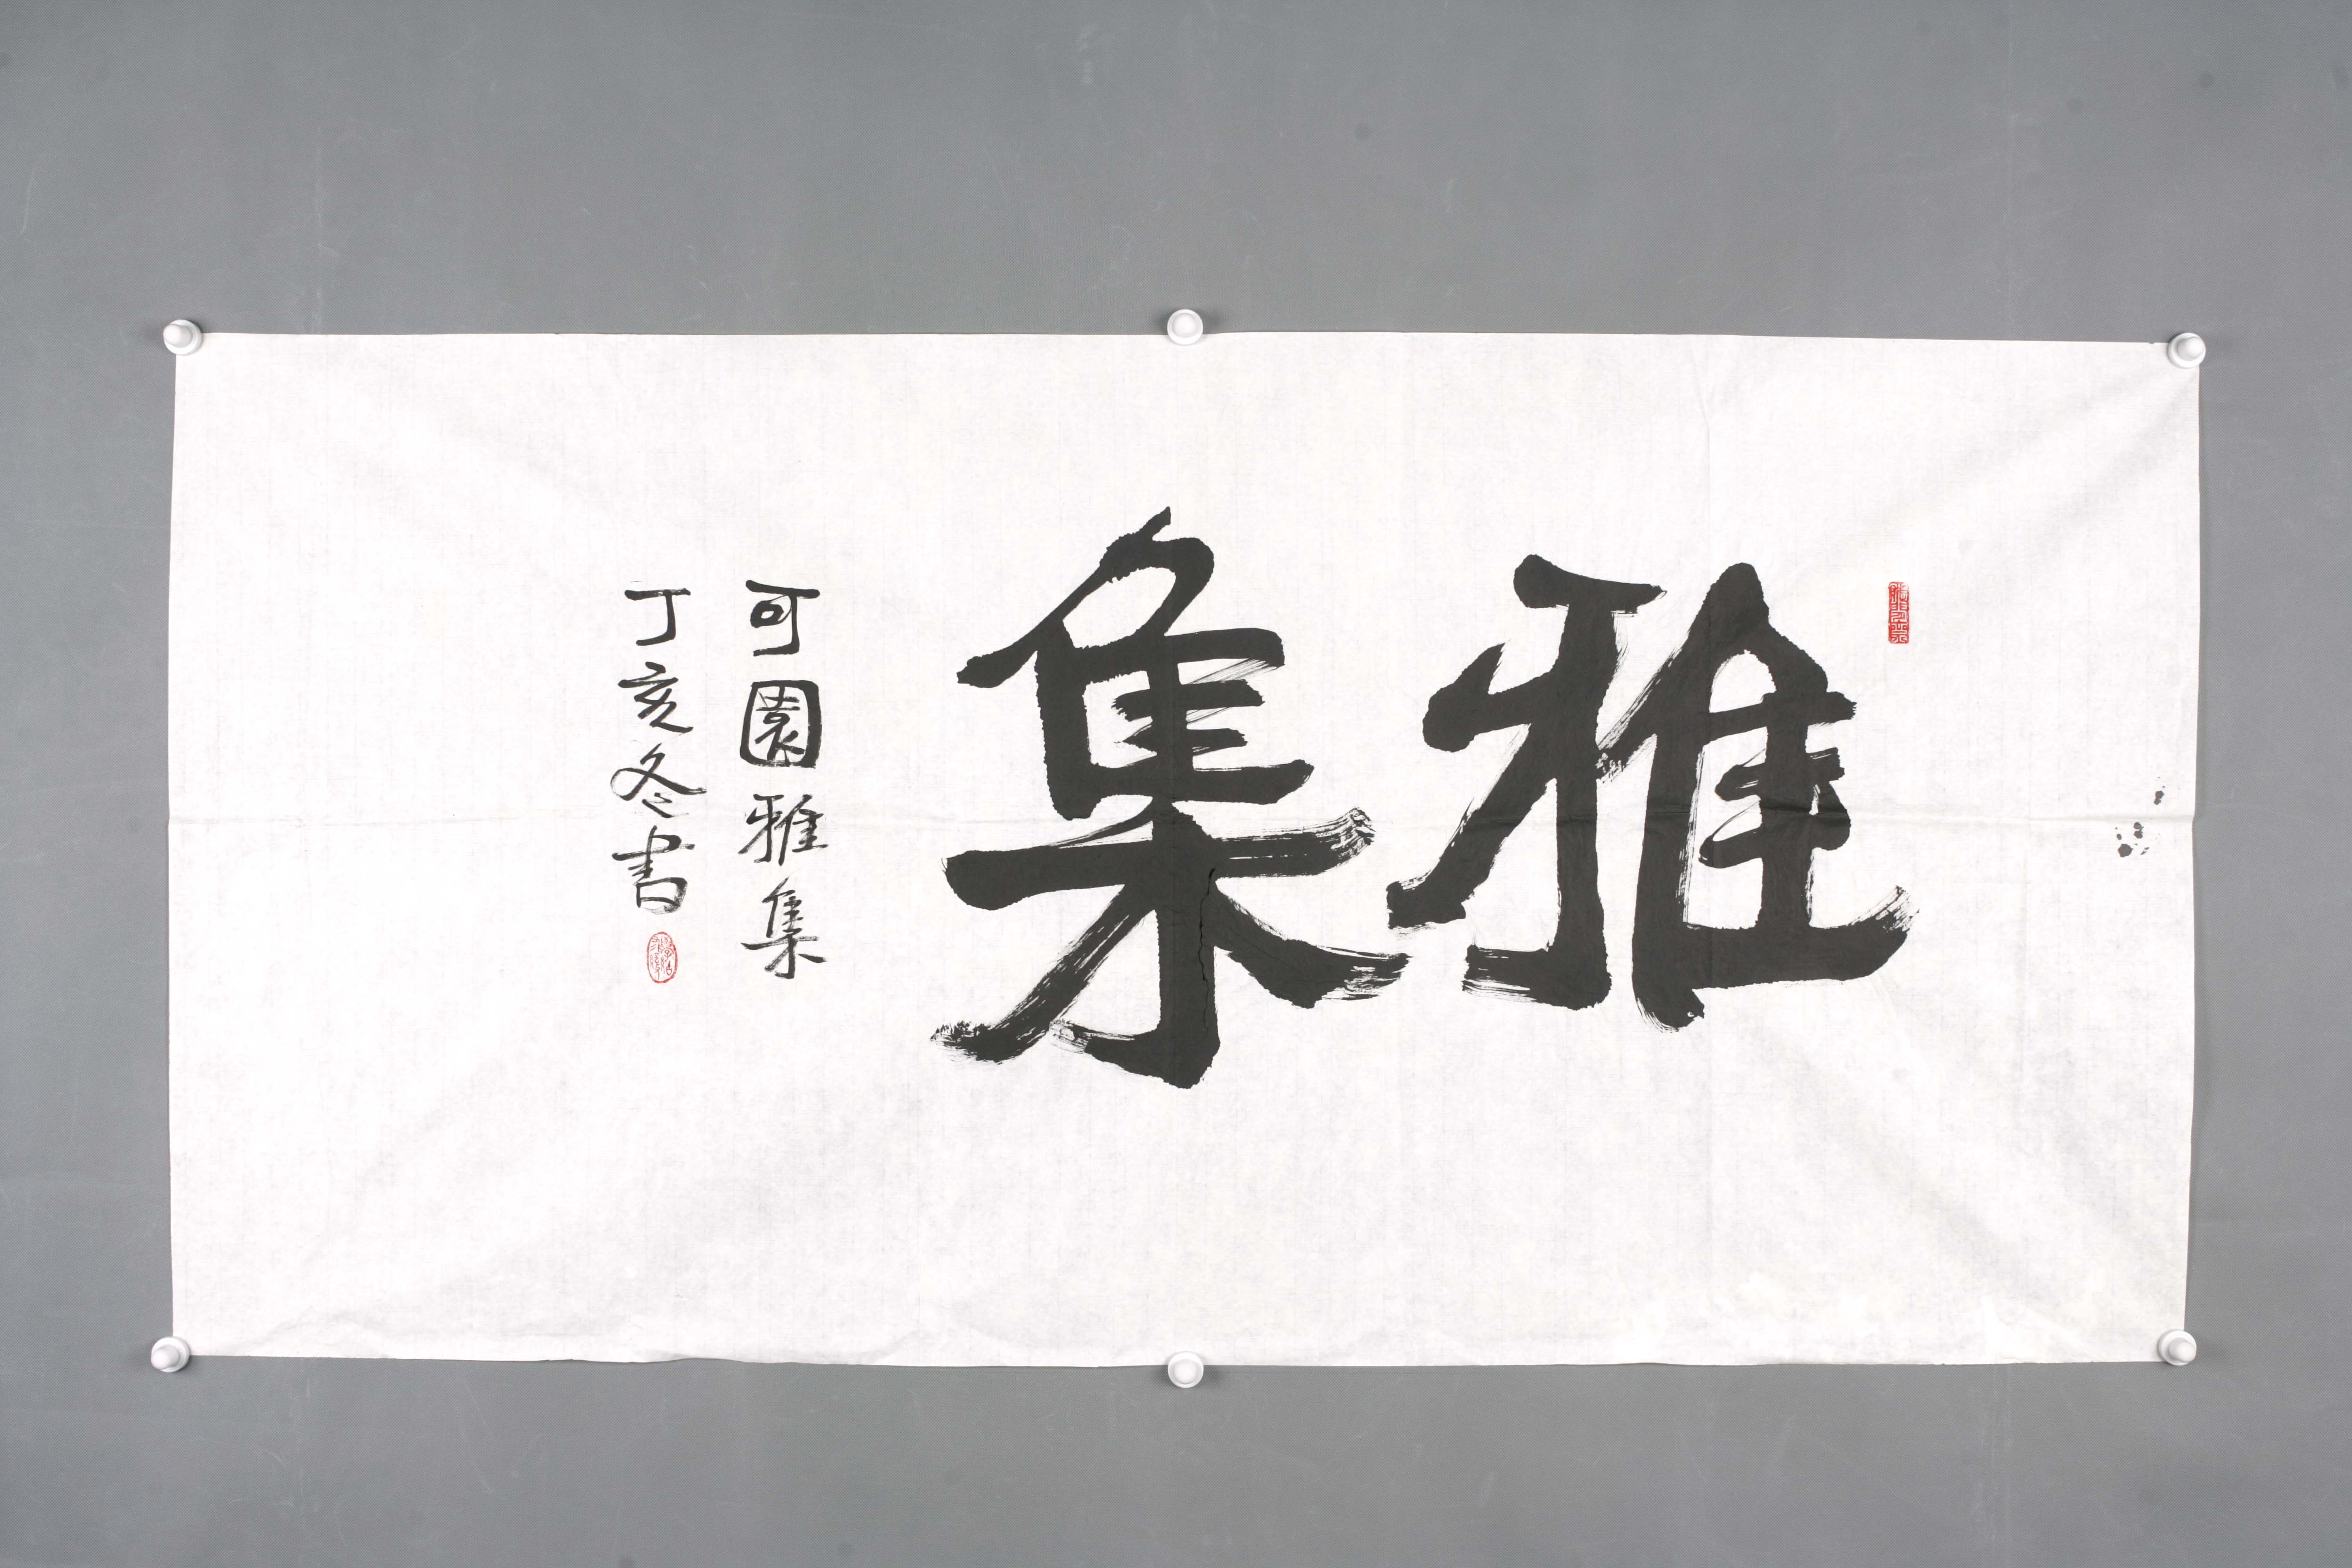 雅集
可園雅集
丁亥冬書